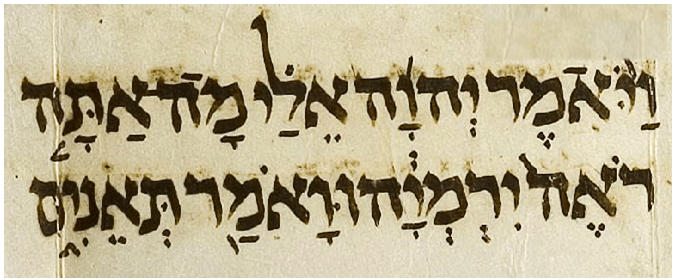 וַיֹּאמֶר יְהוָה אֵלַי מָה־אַתָּה
רֹאֶה יִרְמְיָהוּ וָאֹמַר תְּאֵנִים